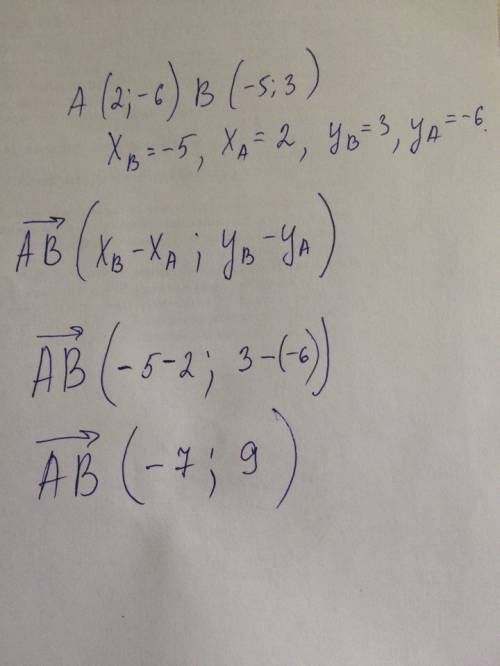 A (2;-6) B (-5;3)
x_B=-5, x_A=2, y_B=3, y_A=-6.
→AB (x_B-x_A; y_B-y_A)
→AB (-5-2; 3-(-6))
→AB (-7; 9)